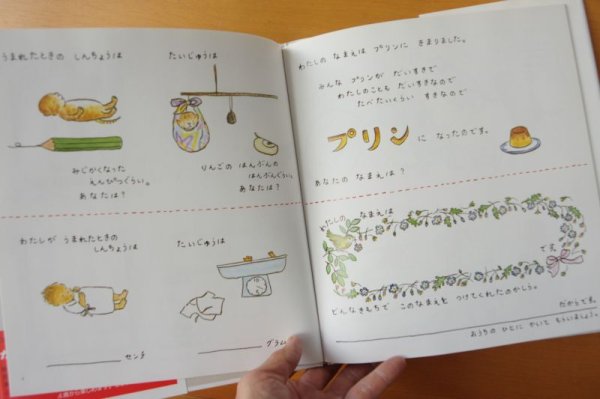 うまれたときの しんちょうは
みじかくなった
えんぴつぐらい。
あなたは？
たいじゅうは
りんごの はんぶんの
はんぶんぐらい。
あなたは？
わたしが うまれたときの
しんちょうは
センチ
たいじゅうは
グラム
わたしの なまえは プリンに きまりました。
みんな プリンが だいすきで
わたしのことも だいすきなので
たべたいくらい すきなので
プリン に なったのです。
あなたの なまえは？
わたしの なまえは
です。
どんなきもちで このなまえを つけてくれたのかしら。
だからです。
おうちの ひとに かいて もらいましょう。